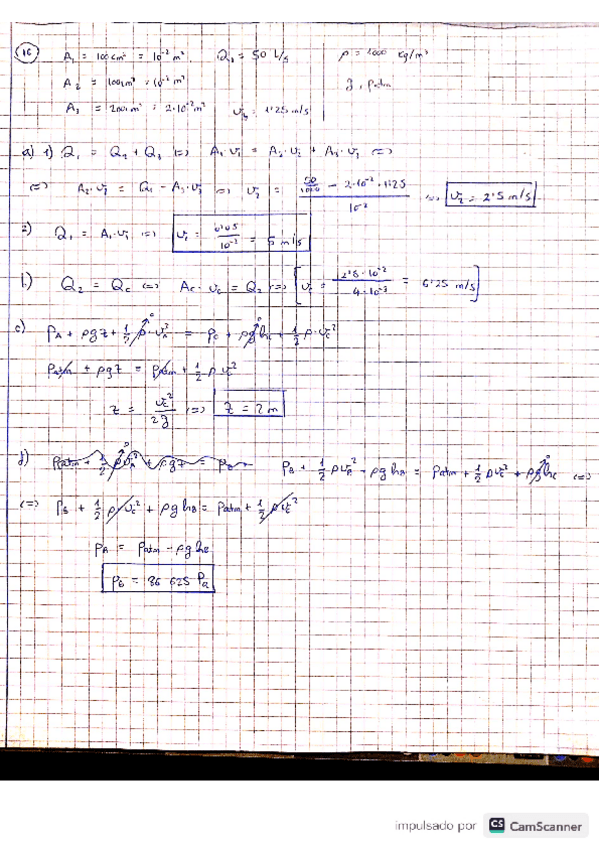 16 A₁ = 100cm² = 10⁻² m² Q₁ = 50 L/s ρ = 1000 kg/m³
A₂ = 100cm² = 10⁻² m² g, patm
A₃ = 200cm² = 2·10⁻² m² v₃ = 1'25 m/s
a) 1) Q₁ = Q₂ + Q₃ (=) A₁·v₁ = A₂·v₂ + A₃·v₃ (=)
(=) A₂·v₂ = Q₁ - A₃·v₃ (=) v₂ = (50/1000 - 2·10⁻²·1'25) / 10⁻² (=) v₂ = 2'5 m/s
2) Q₁ = A₁·v₁ (=) v₁ = 0'05 / 10⁻² = 5 m/s
b) Q₂ = Qc (=) Ac·vc = Q₂ (=) vc = 2'5·10⁻² / 4·10⁻³ = 6'25 m/s
c) PA + ρgz + 1/2 ρ·vA² = Pc + ρghc + 1/2 ρ·vc²
Patm + ρgz = Patm + 1/2 ρ vc²
z = vc² / 2g (=) z = 2 m
d) Patm + 1/2 ρvA² + ρgz = PB PB + 1/2 ρvB² + ρghB = Patm + 1/2 ρvc² + ρghc (=)
(=) PB + 1/2 ρ·vc² + ρghB = Patm + 1/2 ρvc²
PB = Patm - ρghB
PB = 86 625 Pa
impulsado por CS CamScanner